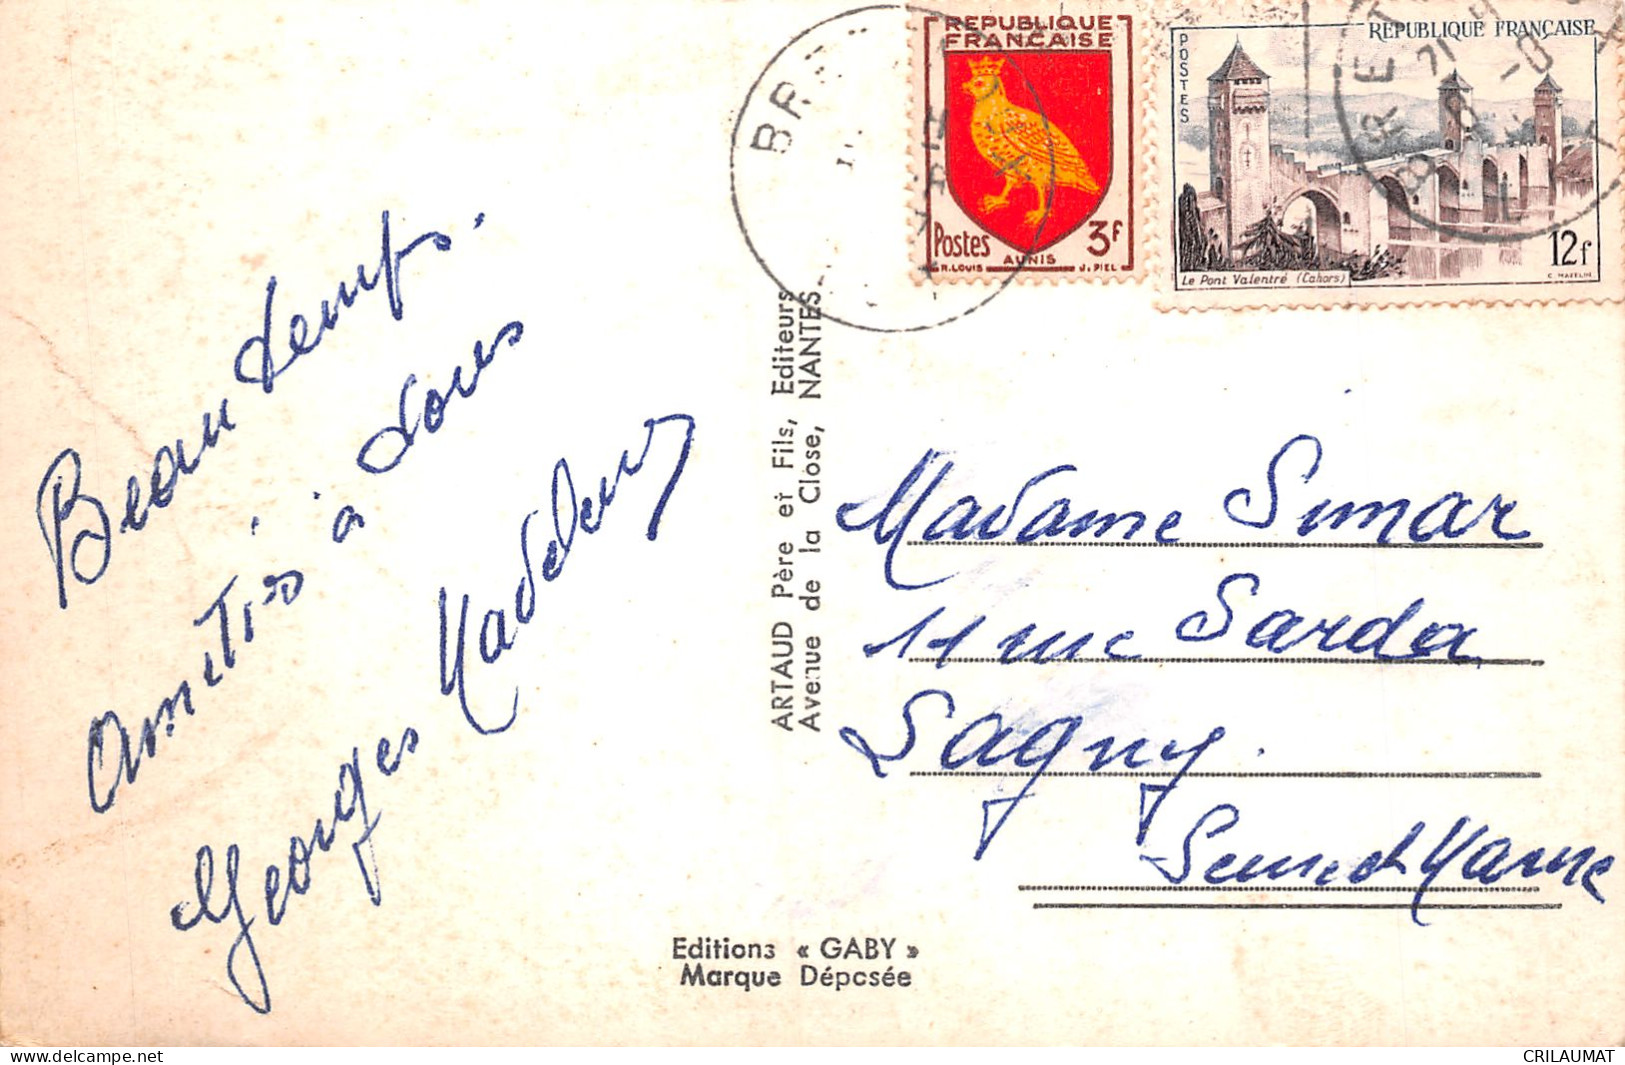 Beau temps.
Amitiés
à tous
Georges Madeleine
ARTAUD Père et Fils, Editeurs
Avenue de la Close, NANTES
Editions « GABY »
Marque Déposée
REPUBLIQUE
FRANÇAISE
Postes 3f
AUNIS
R.LOUIS J.PIEL
REPUBLIQUE FRANÇAISE
POSTES
12f
Le Pont Valentré (Cahors)
C. MAZELIN
Madame Simar
11 rue Sarda
Lagny.
Seine et Marne
CRILAUMAT